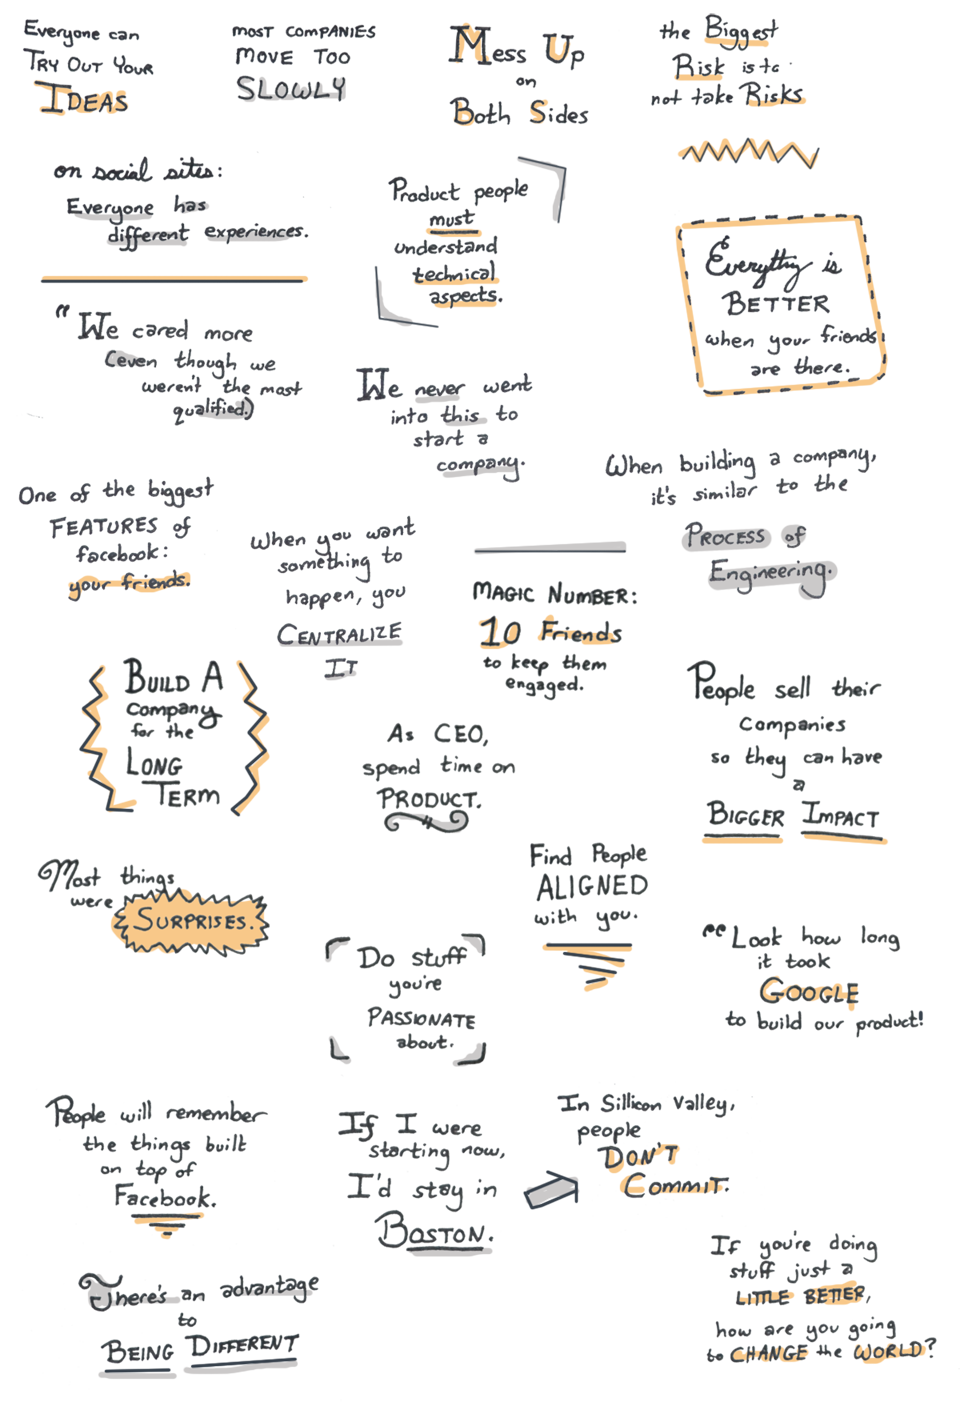 Everyone can
TRY OUT YOUR
IDEAS
MOST COMPANIES
MOVE TOO
SLOWLY
Mess Up
on
Both Sides
the Biggest
Risk is to
not take Risks
on social sites:
Everyone has
different experiences.
Product people
must
understand
technical
aspects.
Everythng is
BETTER
when your friends
are there.
"We cared more
(even though we
weren't the most
qualified.)
We never went
into this to
start a
company.
When building a company,
it's similar to the
PROCESS of
Engineering.
One of the biggest
FEATURES of
facebook:
your friends.
When you want
something to
happen, you
CENTRALIZE
IT
MAGIC NUMBER:
10 Friends
to keep them
engaged.
BUILD A
company
for the
LONG
TERM
As CEO,
spend time on
PRODUCT.
People sell their
companies
so they can have
a
BIGGER IMPACT
Most things
were
SURPRISES.
Find People
ALIGNED
with you.
Do stuff
you're
PASSIONATE
about.
"Look how long
it took
GOOGLE
to build our product!
People will remember
the things built
on top of
Facebook.
If I were
starting now,
I'd stay in
BOSTON.
In Sillicon Valley,
people
DON'T
COMMIT.
There's an advantage
to
BEING DIFFERENT
If you're doing
stuff just a
LITTLE BETTER,
how are you going
to CHANGE the WORLD?